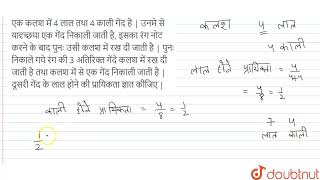 एक कलश में 4 लाल तथा 4 काली गेंद है | उनमे से
यादृच्छया एक गेंद निकाली जाती है, इसका रंग नोट
करने के बाद पुनः उसी कलश में रख दी जाती है | पुनः
निकाले गये रंग की 3 अतिरिक्त गेंदे कलश में रख दी
जाती है तथा कलश में से एक गेंद निकाली जाती है |
दूसरी गेंद के लाल होने की प्रायिकता ज्ञात कीजिए |
कलश 4 लाल
4 काली
लाल होने प्रायिकता = 4/4+4
= 4/8 = 1/2
काली होने प्रायिकता = 4/8 = 1/2
7 4
लाल काली
1/2
doubtnut